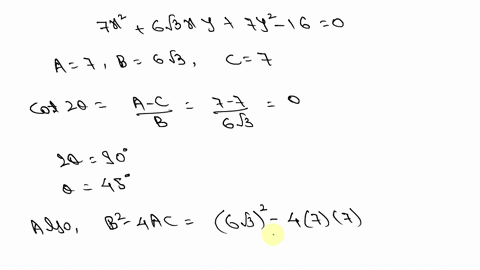 7x² + 6√3xy + 7y² - 16 = 0
A = 7, B = 6√3, C = 7
Cot 2θ = (A-C)/B = (7-7)/(6√3) = 0
2θ = 90°
θ = 45°
Also, B² - 4AC = (6√3)² - 4(7)(7)